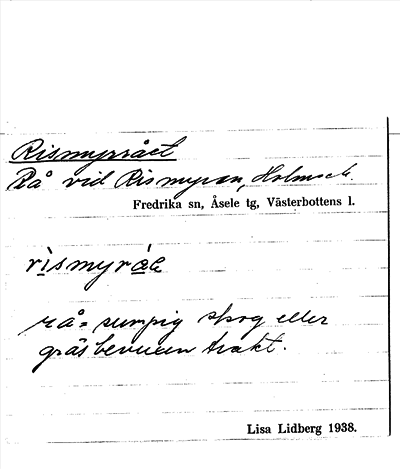 Rismyrrået
Rå vid Rismyran, Holmsele.
Fredrika sn, Åsele tg, Västerbottens l.
rå = sumpig skog eller
gräsbevuxen trakt.
Lisa Lidberg 1938.